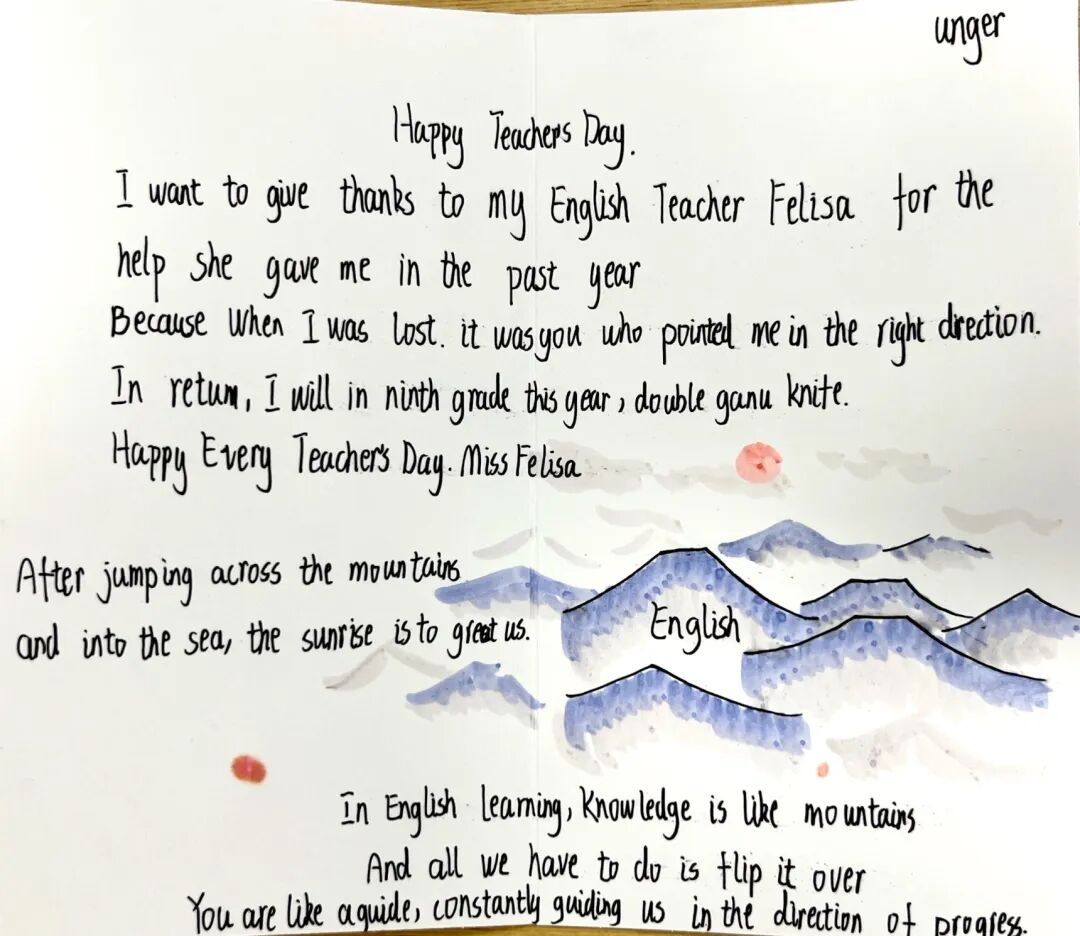 unger
Happy Teachers Day.
I want to give thanks to my English Teacher Felisa for the
help she gave me in the past year
Because When I was lost. it was you who pointed me in the right direction.
In return, I will in ninth grade this year, double ganu knite.
Happy Every Teacher's Day. Miss Felisa
After jumping across the mountains
and into the sea, the sunrise is to great us.
English
In English learning, Knowledge is like mountains
And all we have to do is flip it over
You are like a guide, constantly guiding us in the direction of progress.